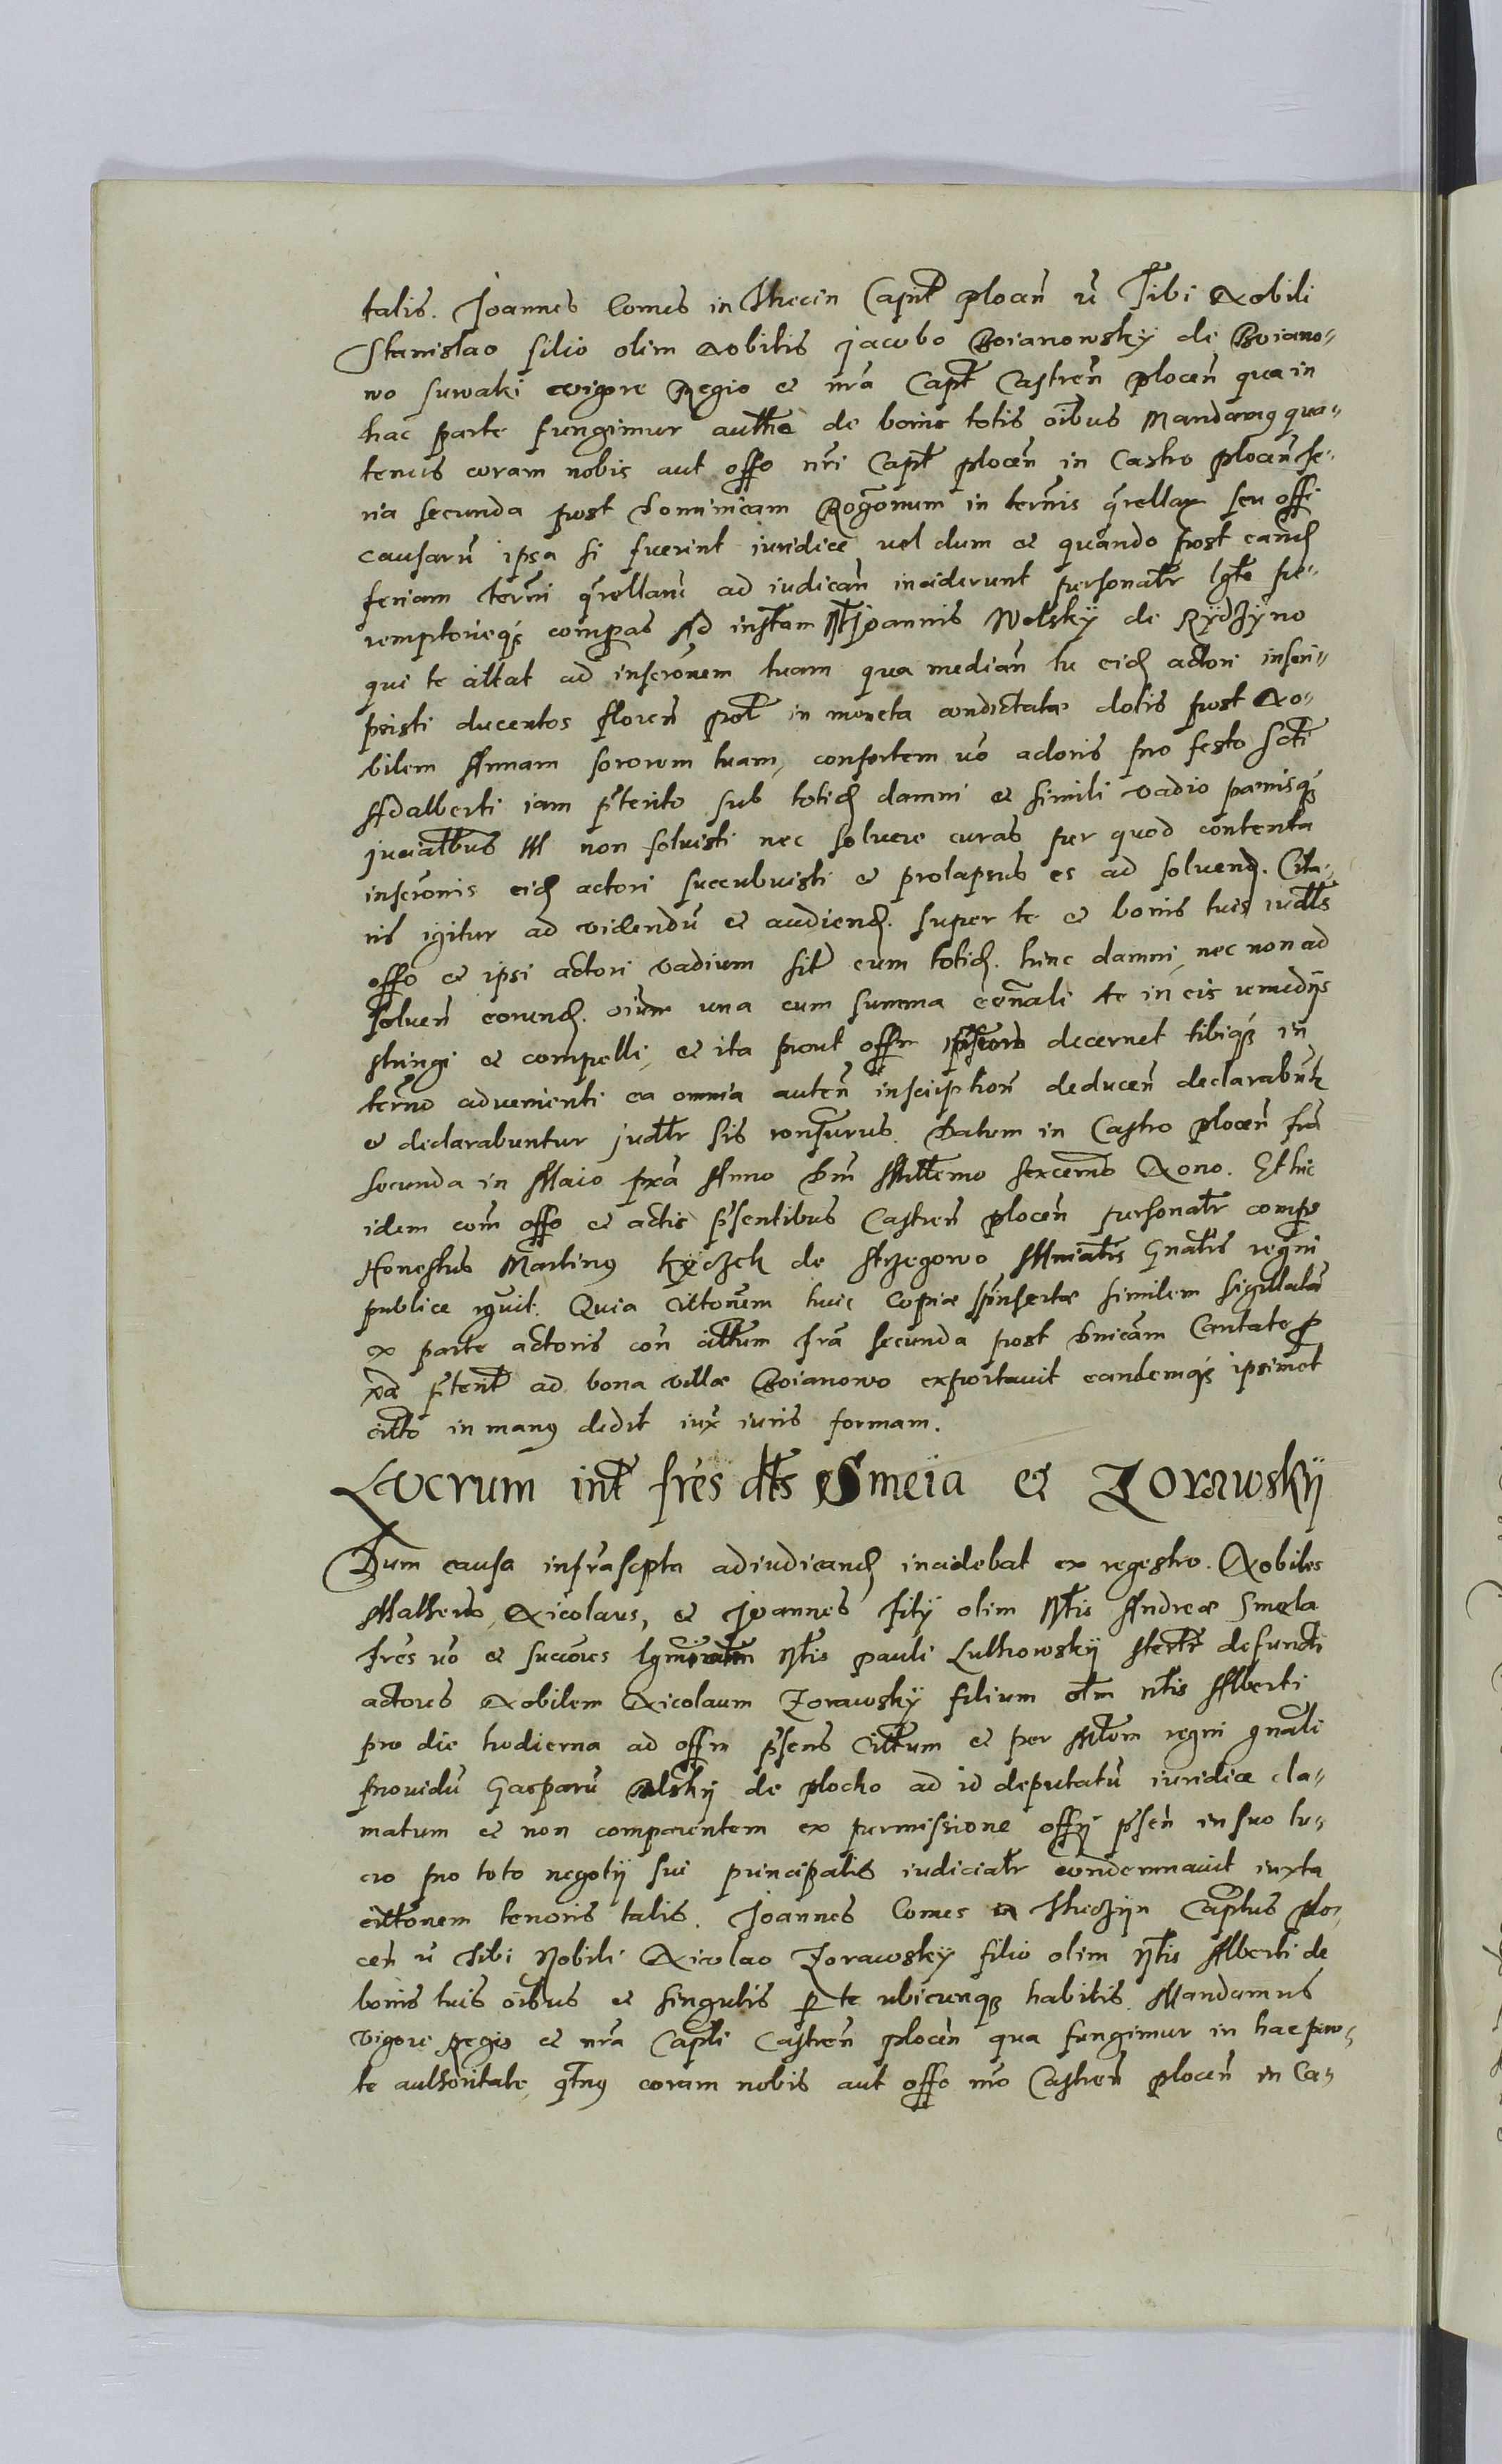 talis. Joannes Comes in Thecin Capit plocen̄ ū Tibi Nobili
Stanislao filio olim Nobilis jacobo Boianowskÿ de Boiano-
wo suwaki vigore Regio et nrā Capt Castren̄ plocen̄ qua in
hac parte fungimur autthe de bonis totis oībus Mandamus qua-
tenus coram nobis aut offo nrī Capt plocen̄ in Castro plocen̄ fe-
ria secunda post Dominicam Rogōnum in termīs qrellar seu offi
causarū ipsa si fuerint iuridice vel dum et quando post eand
feriam termī qrellarū ad iudican̄ inciderunt personatr lgtte pe-
remptorieqz compas Ad instam Nt Joannis Wolskÿ de Rÿdzÿno
qui te cittat ad inscrōnem tuam qua median̄ tu eid actori inscri-
psisti ducentos floren̄ pol in moneta condictata dotis post No-
bilem Annam sororem tuam, consortem vō actoris pro festo scti
Adalberti iam pterito sub totid damni et simili vadio pænisqz
juciatbus non soluisti nec soluere curas per quod contenta
inscrōnis eid actori succubuisti et prolapsus es ad soluend. Cita-
ris igitur ad videndū et audiend. super te et bonis tuis iudtts
offo et ipsi actori vadium sitr cum totid. hinc damni, nec non ad
soluen̄ eorund. oīum una cum summa cōnali te in eis remedÿs
stringi et compelli, et ita prout offm decernet tibiqz in
termō advenienti ea omnia auten̄ insciption̄ deducen̄ declarabunt
et declarabuntur judttr sis responsurus. Datum in Castro plocen̄ fra
secunda in Maio pxā Anno Dnī Milttemo sexcemo Nono. Et hic
idem corā offo et actis psentibus Castren̄ plocen̄ personatr compe
Honestus Martinus de strzegowo Mniatts Gnatis regni
publice rguit. Quia Cittonem huic copiæ pinsertæ similem sigillatā
ex parte actoris con̄ cittum fra secunda post Dnicam Cantate p
xā pterit ad bona villæ Boianowo exportauit eandemqz ipsimet
citto in manus dedit iux iuris formam.
Lucrum int fres dtts Smeia et Zorawskÿ
Dum causa infrascpta adiudicand incidebat ex regestro. Nobiles
Matheus, Nicolaus, et Joannes filÿ olim Ntis Andreæ Smela
fres vō et succōres Ntis pauli Lutkowskÿ stertr defuncti
actores Nobilem Nicolaum Zorawskÿ filium otm ntis Alberti
pro die hodierna ad offm psens Cittum et per Mtem regni gnali
prouidū Gasparū de plocko ad id deputatū iuridice cla-
matum et non comparentem ex permissione offÿ psen̄ in suo lu-
cro pro toto negotÿ sui principalis iudiciatr condemnauit iuxta
cittonem tenoris talis. Joannes Comes in Theczÿn Captus plo-
cen̄ ū Tibi Nobili Nicolao Zorawskÿ filio olim Ntis Alberti de
bonis tuis oībus et singulis p te ubicunqz habitis. Mandamus
vigore Regis et nrā Capti Castren̄ plocen̄ qua fungimur in hac par-
te authoritate, qtnus coram nobis aut offo nrō Castren̄ plocen̄ in Ca-